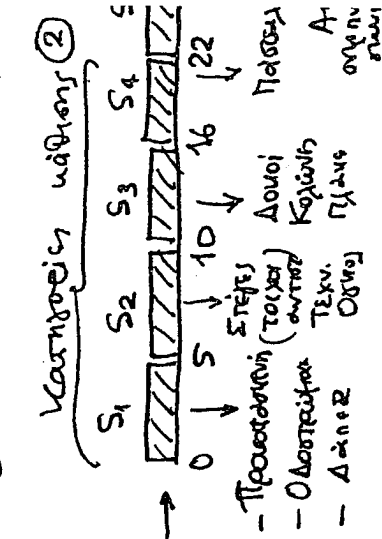 Κατηγορίες κάθισης ②
S1 S2 S3 S4 S
0 5 10 16 22
- Προεντεταμένη
- Οδοστρώματα
- Δάπεδ
Στέγες
(τοίχοι
αντιστ
Τεχν.
Ογκοι
Δοκοί
Κολώνες
Πλάκε
Πάσσαλ